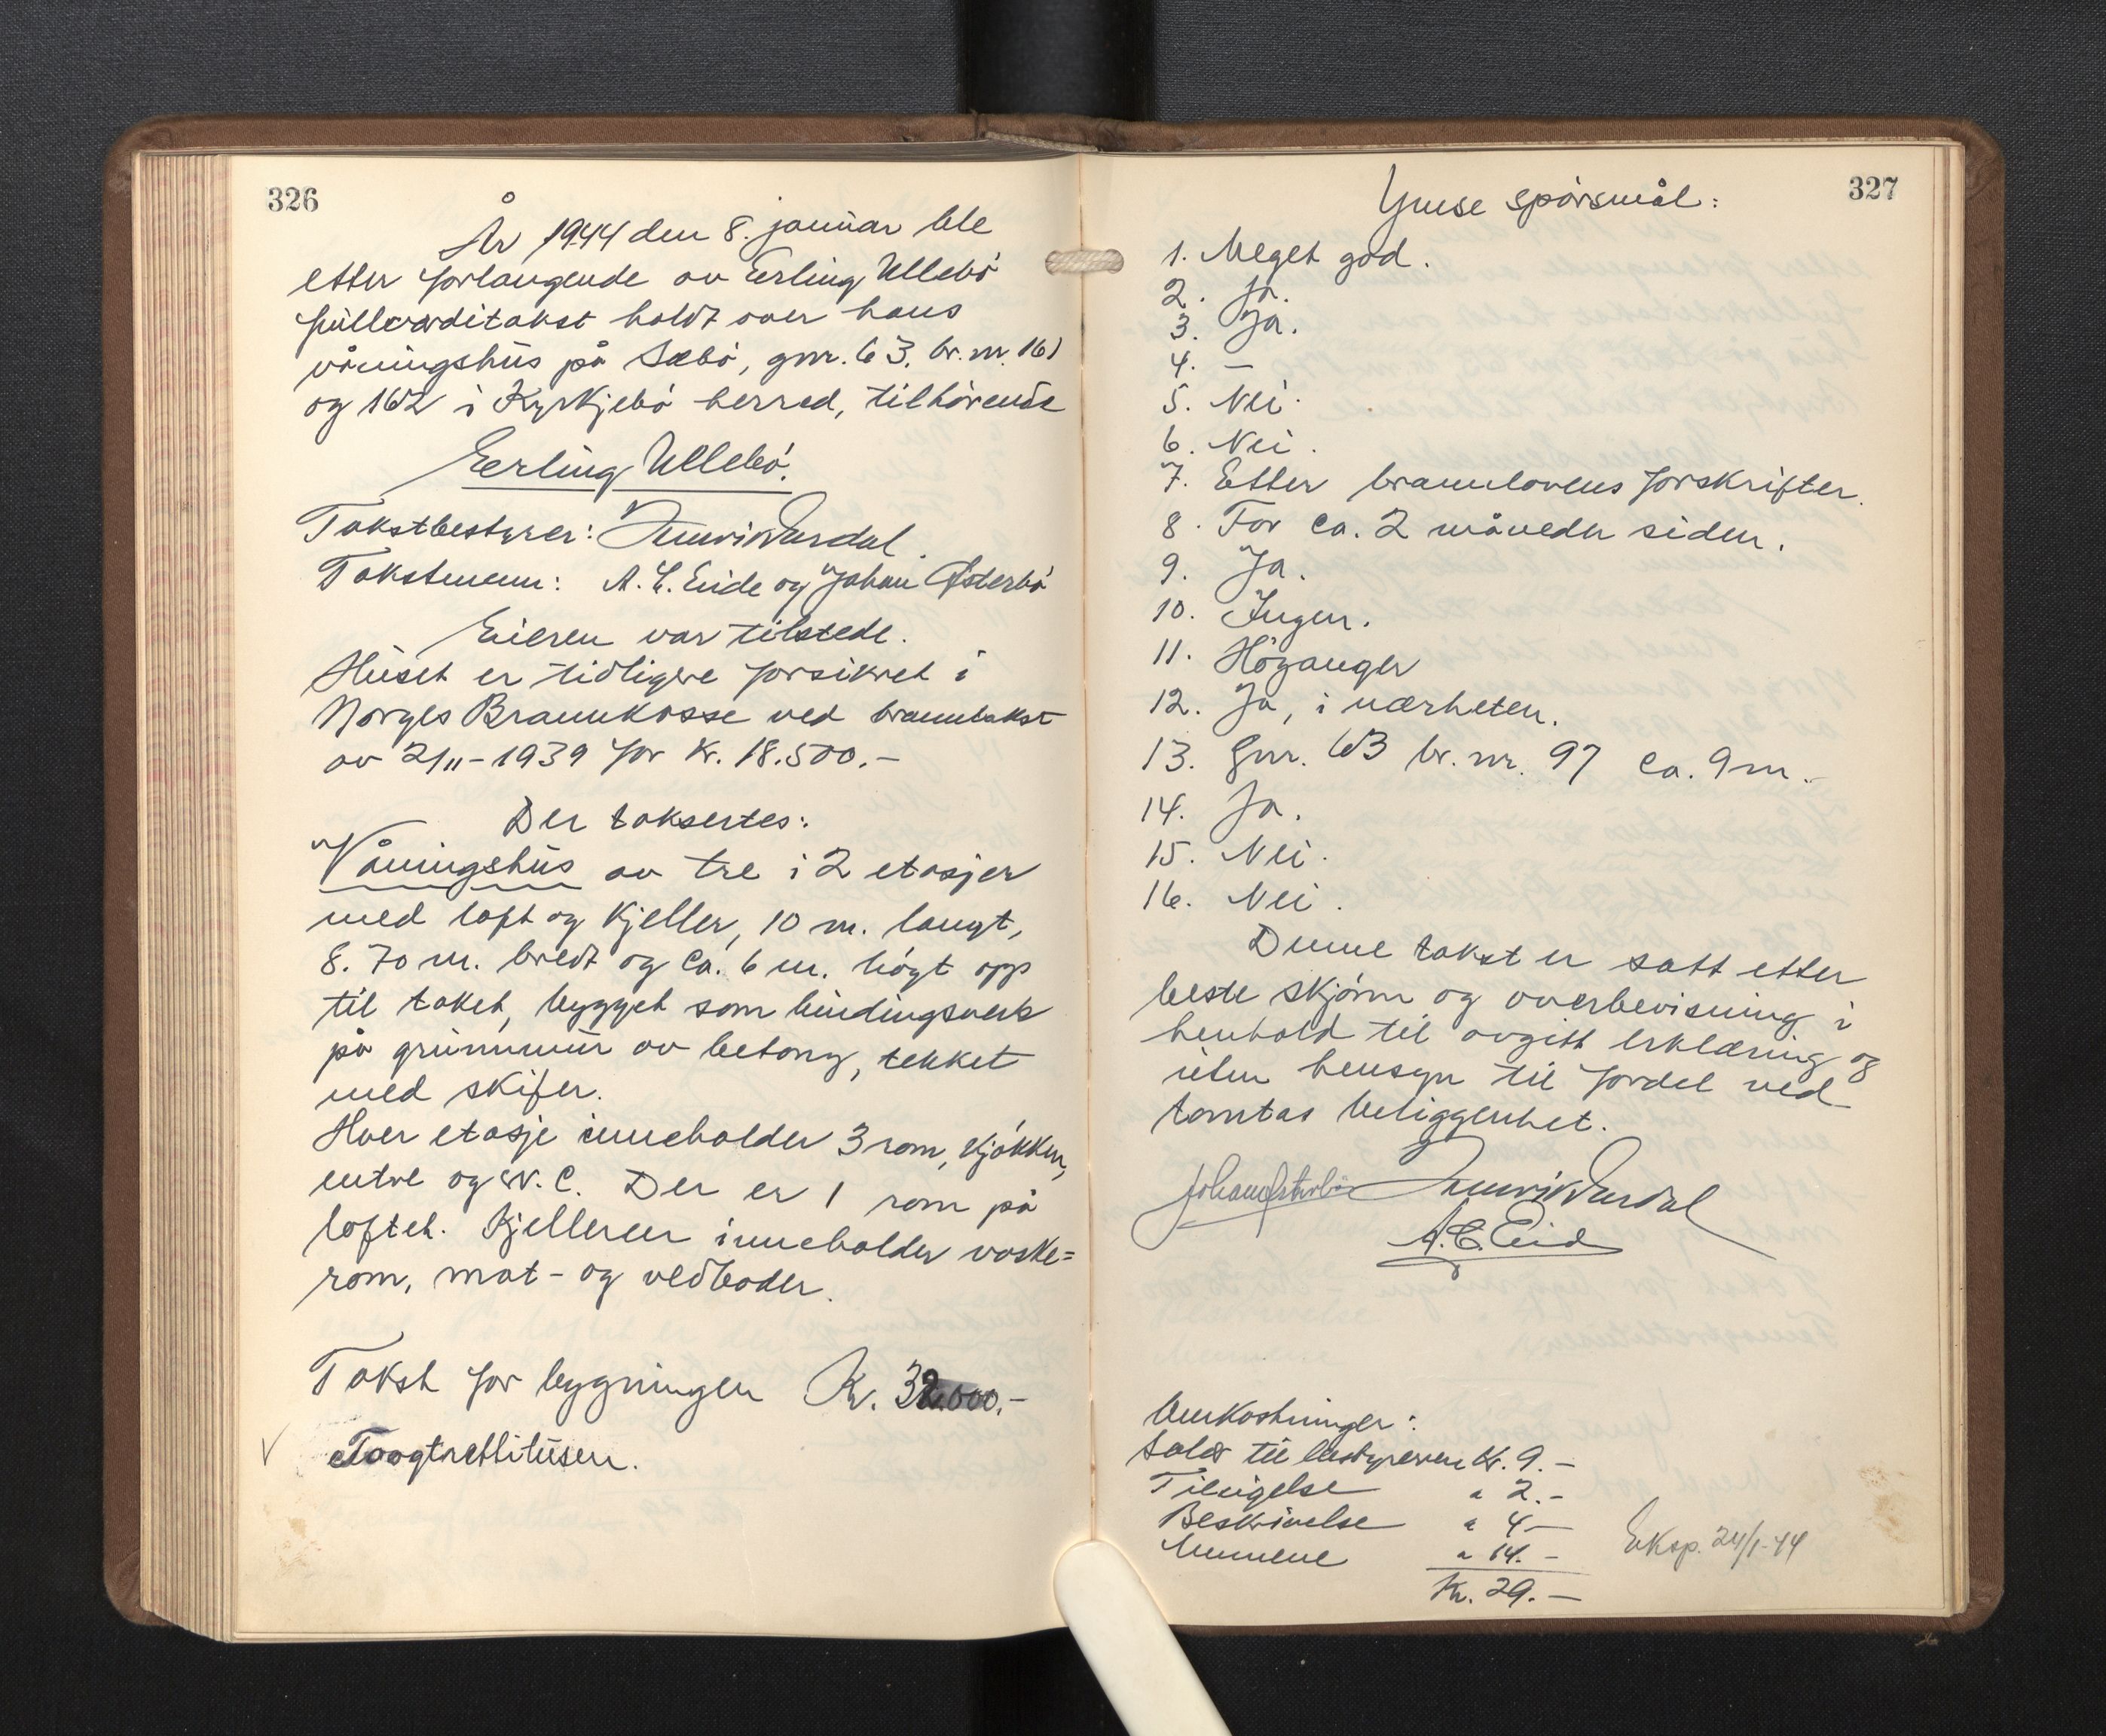 326
År 1944 den 8. januar ble
etter forlangende av Erling Ullebö
fullverditakst holdt over hans
våningshus på Sæbö, gnr. 63. br. nr. 161
og 162 i Kyrkjebö herred, tilhörende
Erling Ullebö.
Takstbestyrer: Henrik Vardal.
Takstmenn: A. E. Eide og Johan Østerbö
Eieren var tilstede.
Huset er tidligere forsikret i
Norges Brannkasse ved branntakst
av 2/11-1939 for kr. 18.500.-
Der taksertes:
Våningshus av tre i 2 etasjer
med loft og kjeller, 10 m. langt,
8.70 m. bredt og ca. 6 m. högt opp
til taket, bygget som bindingsverk
på grunnmur av betong, tekket
med skifer.
Hver etasje inneholder 3 rom, kjökken,
entre og W.C. Der er 1 rom på
loftet. Kjelleren inneholder vaske=
rom, mat- og vedboder.
Takst for bygningen Kr. 32.000.-
Toogtrettitusen.
327
Ymse spörsmål:
1. Meget god.
2. Ja.
3. Ja.
4. —
5. Nei.
6. Nei.
7. Etter brannlovens forskrifter.
8. For ca. 2 måneder siden.
9. Ja.
10. Ingen.
11. Höyanger
12. Ja, i nærheten.
13. Gnr. 63 br. nr. 97 ca. 9 m.-
14. Ja.
15. Nei.
16. Nei.
Denne takst er satt etter
beste skjönn og overbevisning i
henhold til avgitt erklæring og
uten hensyn til fordel ved
tomtas beliggenhet.
Johan Østerbö Henrik Vardal
A. E. Eide
Omkostninger:
Salær til bestyreren Kr. 9.-
Tilsigelse " 2.-
Beskrivelse " 4-
Mennene " 14.-
Kr. 29.-
Eksp. 24/1-44